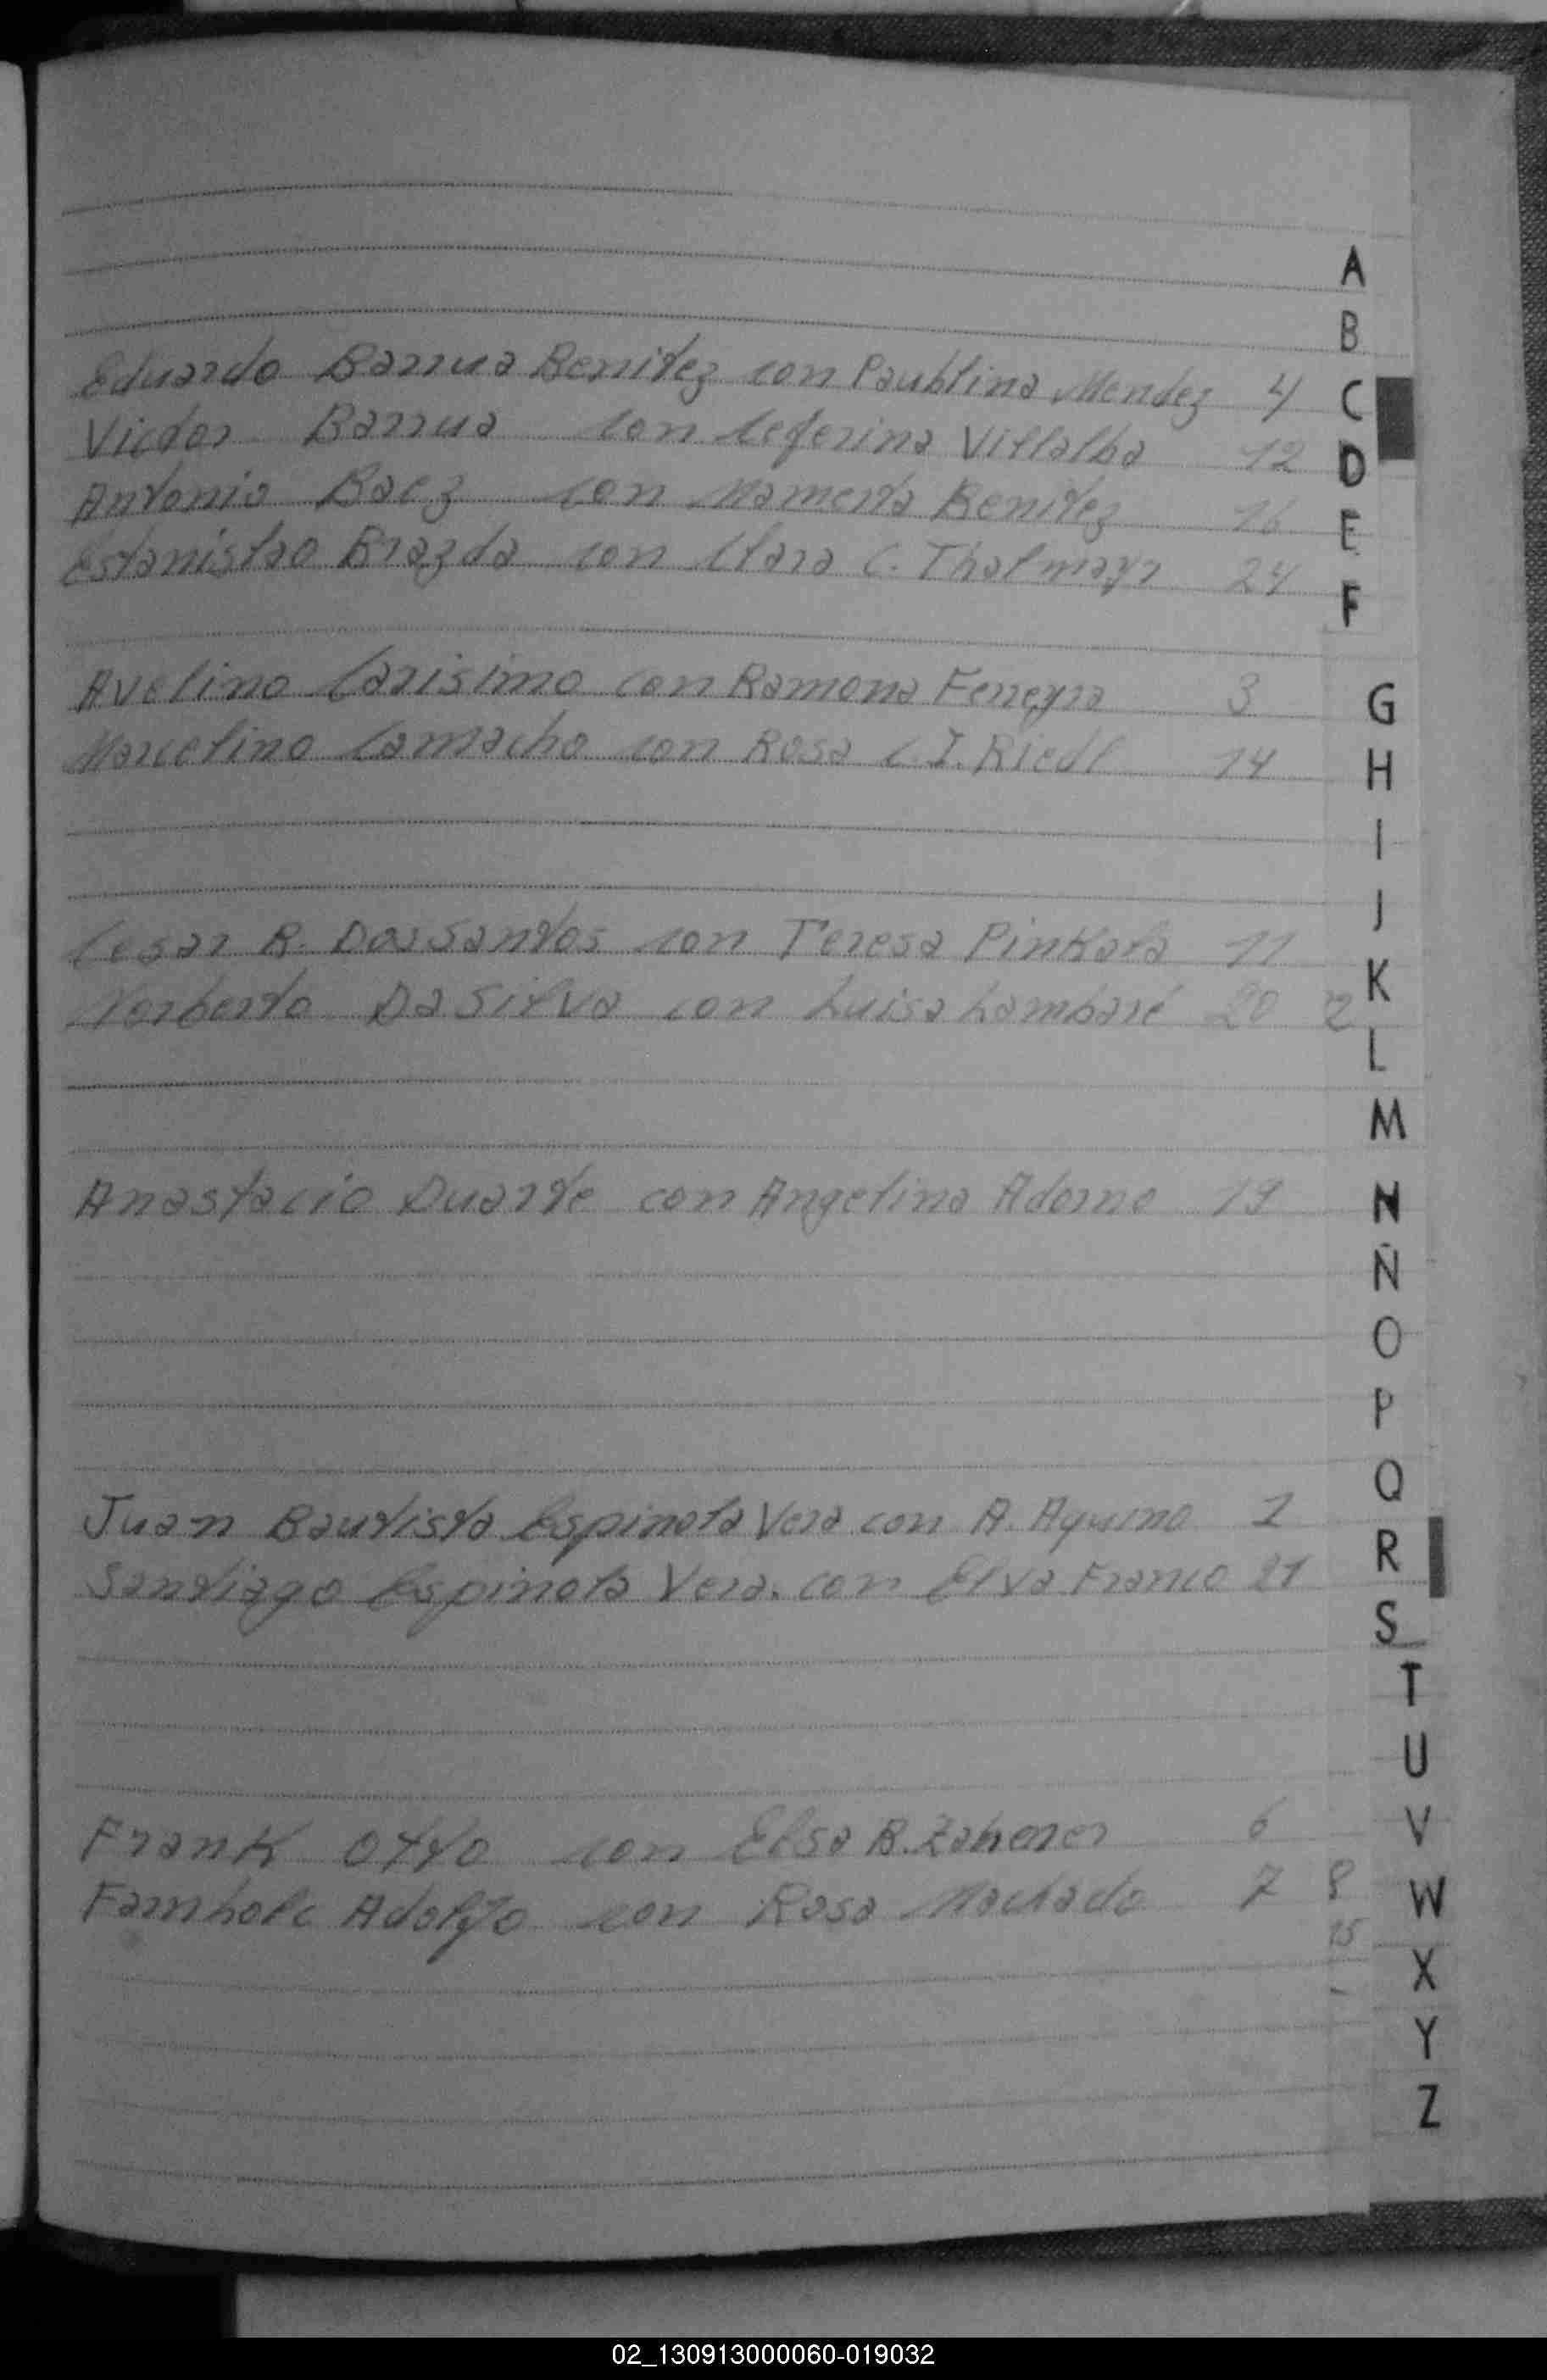 Eduardo Barrua Benitez con Paublina Mendez 4
Victor Barrua con Ceferina Villalba 12
Antonio Baez con Mamerta Benitez 16
Estanislao Brazda con Clara C. Thalmayr 24
Avelino Carisimo con Ramona Ferreyra 3
Marcelino Camacho con Rosa C.I. Riedl 14
Cesar R. Dos Santos con Teresa Pinkala 11
Norberto Da Silva con Luisa Lambaré 20 2
Anastacio Duarte con Angelina Adorno 19
Juan Bautista Espinola Vera con A. Aquino 1
Santiago Espinola Vera. con Elva Franco 21
Frank Otto con Elsa B. Zaherer 6
Adolfo con Rosa Machado 7 8
15
A
B
C
D
E
F
G
H
I
J
K
L
M
N
Ñ
O
P
Q
R
S
T
U
V
W
X
Y
Z
02_130913000060-019032